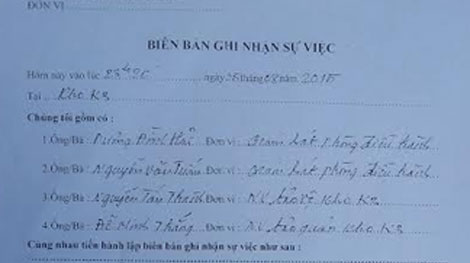 ĐƠN VỊ
BIÊN BẢN GHI NHẬN SỰ VIỆC
Hôm nay vào lúc 23h ngày tháng 08 năm 2015
Tại Kho K3
Chúng tôi gồm có :
1.Ông/Bà : Đình Đơn vị : Giám sát phòng điều hành
2.Ông/Bà : Nguyễn Văn Tuấn Đơn vị : Giám sát phòng điều hành
3.Ông/Bà : Nguyễn Tấn Thành Đơn vị : NV bảo vệ kho K3
4.Ông/Bà : Đỗ Minh Thắng Đơn vị : NV bảo quản kho K3
Cùng nhau tiến hành lập biên bản ghi nhận sự việc như sau :